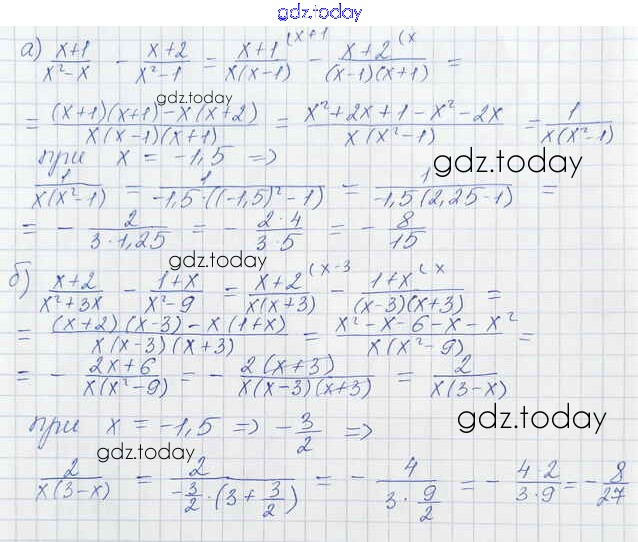 gdz.today
а) (x+1)/(x²-x) - (x+2)/(x²-1) = (x+1)/(x(x-1)) (x+1 - (x+2)/((x-1)(x+1)) (x =
= ((x+1)(x+1)-x(x+2))/(x(x-1)(x+1)) = (x²+2x+1-x²-2x)/(x(x²-1)) = 1/(x(x²-1))
gdz.today
при x = -1,5 =>
gdz.today
1/(x(x²-1)) = 1/(-1,5·((-1,5)²-1)) = 1/(-1,5(2,25-1)) =
= - 2/(3·1,25) = - (2·4)/(3·5) = - 8/15
gdz.today
б) (x+2)/(x²+3x) - (1+x)/(x²-9) = (x+2)/(x(x+3)) (x-3 - (1+x)/((x-3)(x+3)) (x =
= ((x+2)(x-3)-x(1+x))/(x(x-3)(x+3)) = (x²-x-6-x-x²)/(x(x²-9)) =
= - (2x+6)/(x(x²-9)) = - (2(x+3))/(x(x-3)(x+3)) = 2/(x(3-x))
при x = -1,5 => -3/2 =>
gdz.today
gdz.today
2/(x(3-x)) = 2/(-3/2·(3+3/2)) = - 4/(3·9/2) = - (4·2)/(3·9) = - 8/27
gdz.today